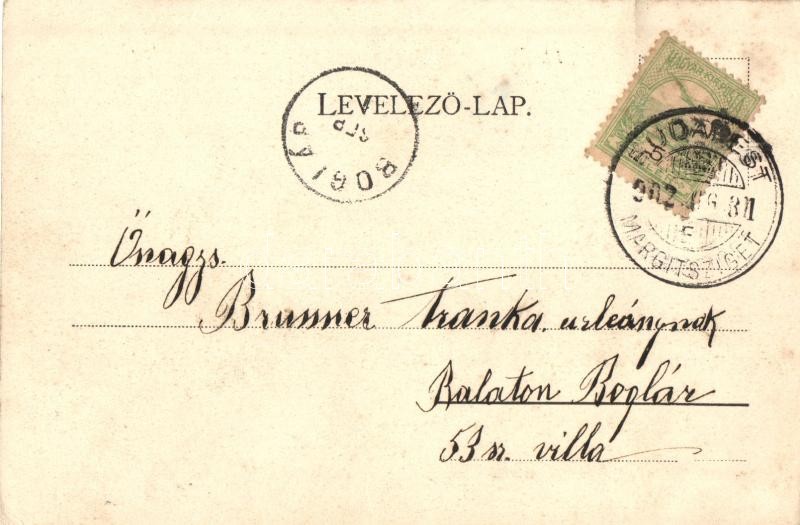 LEVELEZŐ-LAP.
BOGLÁR
SEP
MAGYAR KIR. POSTA
BUDAPEST
902 AUG 31
MARGITSZIGET
Őnagys.
Brunner Iranka urleánynak
Balaton Boglár
53 sz. villa